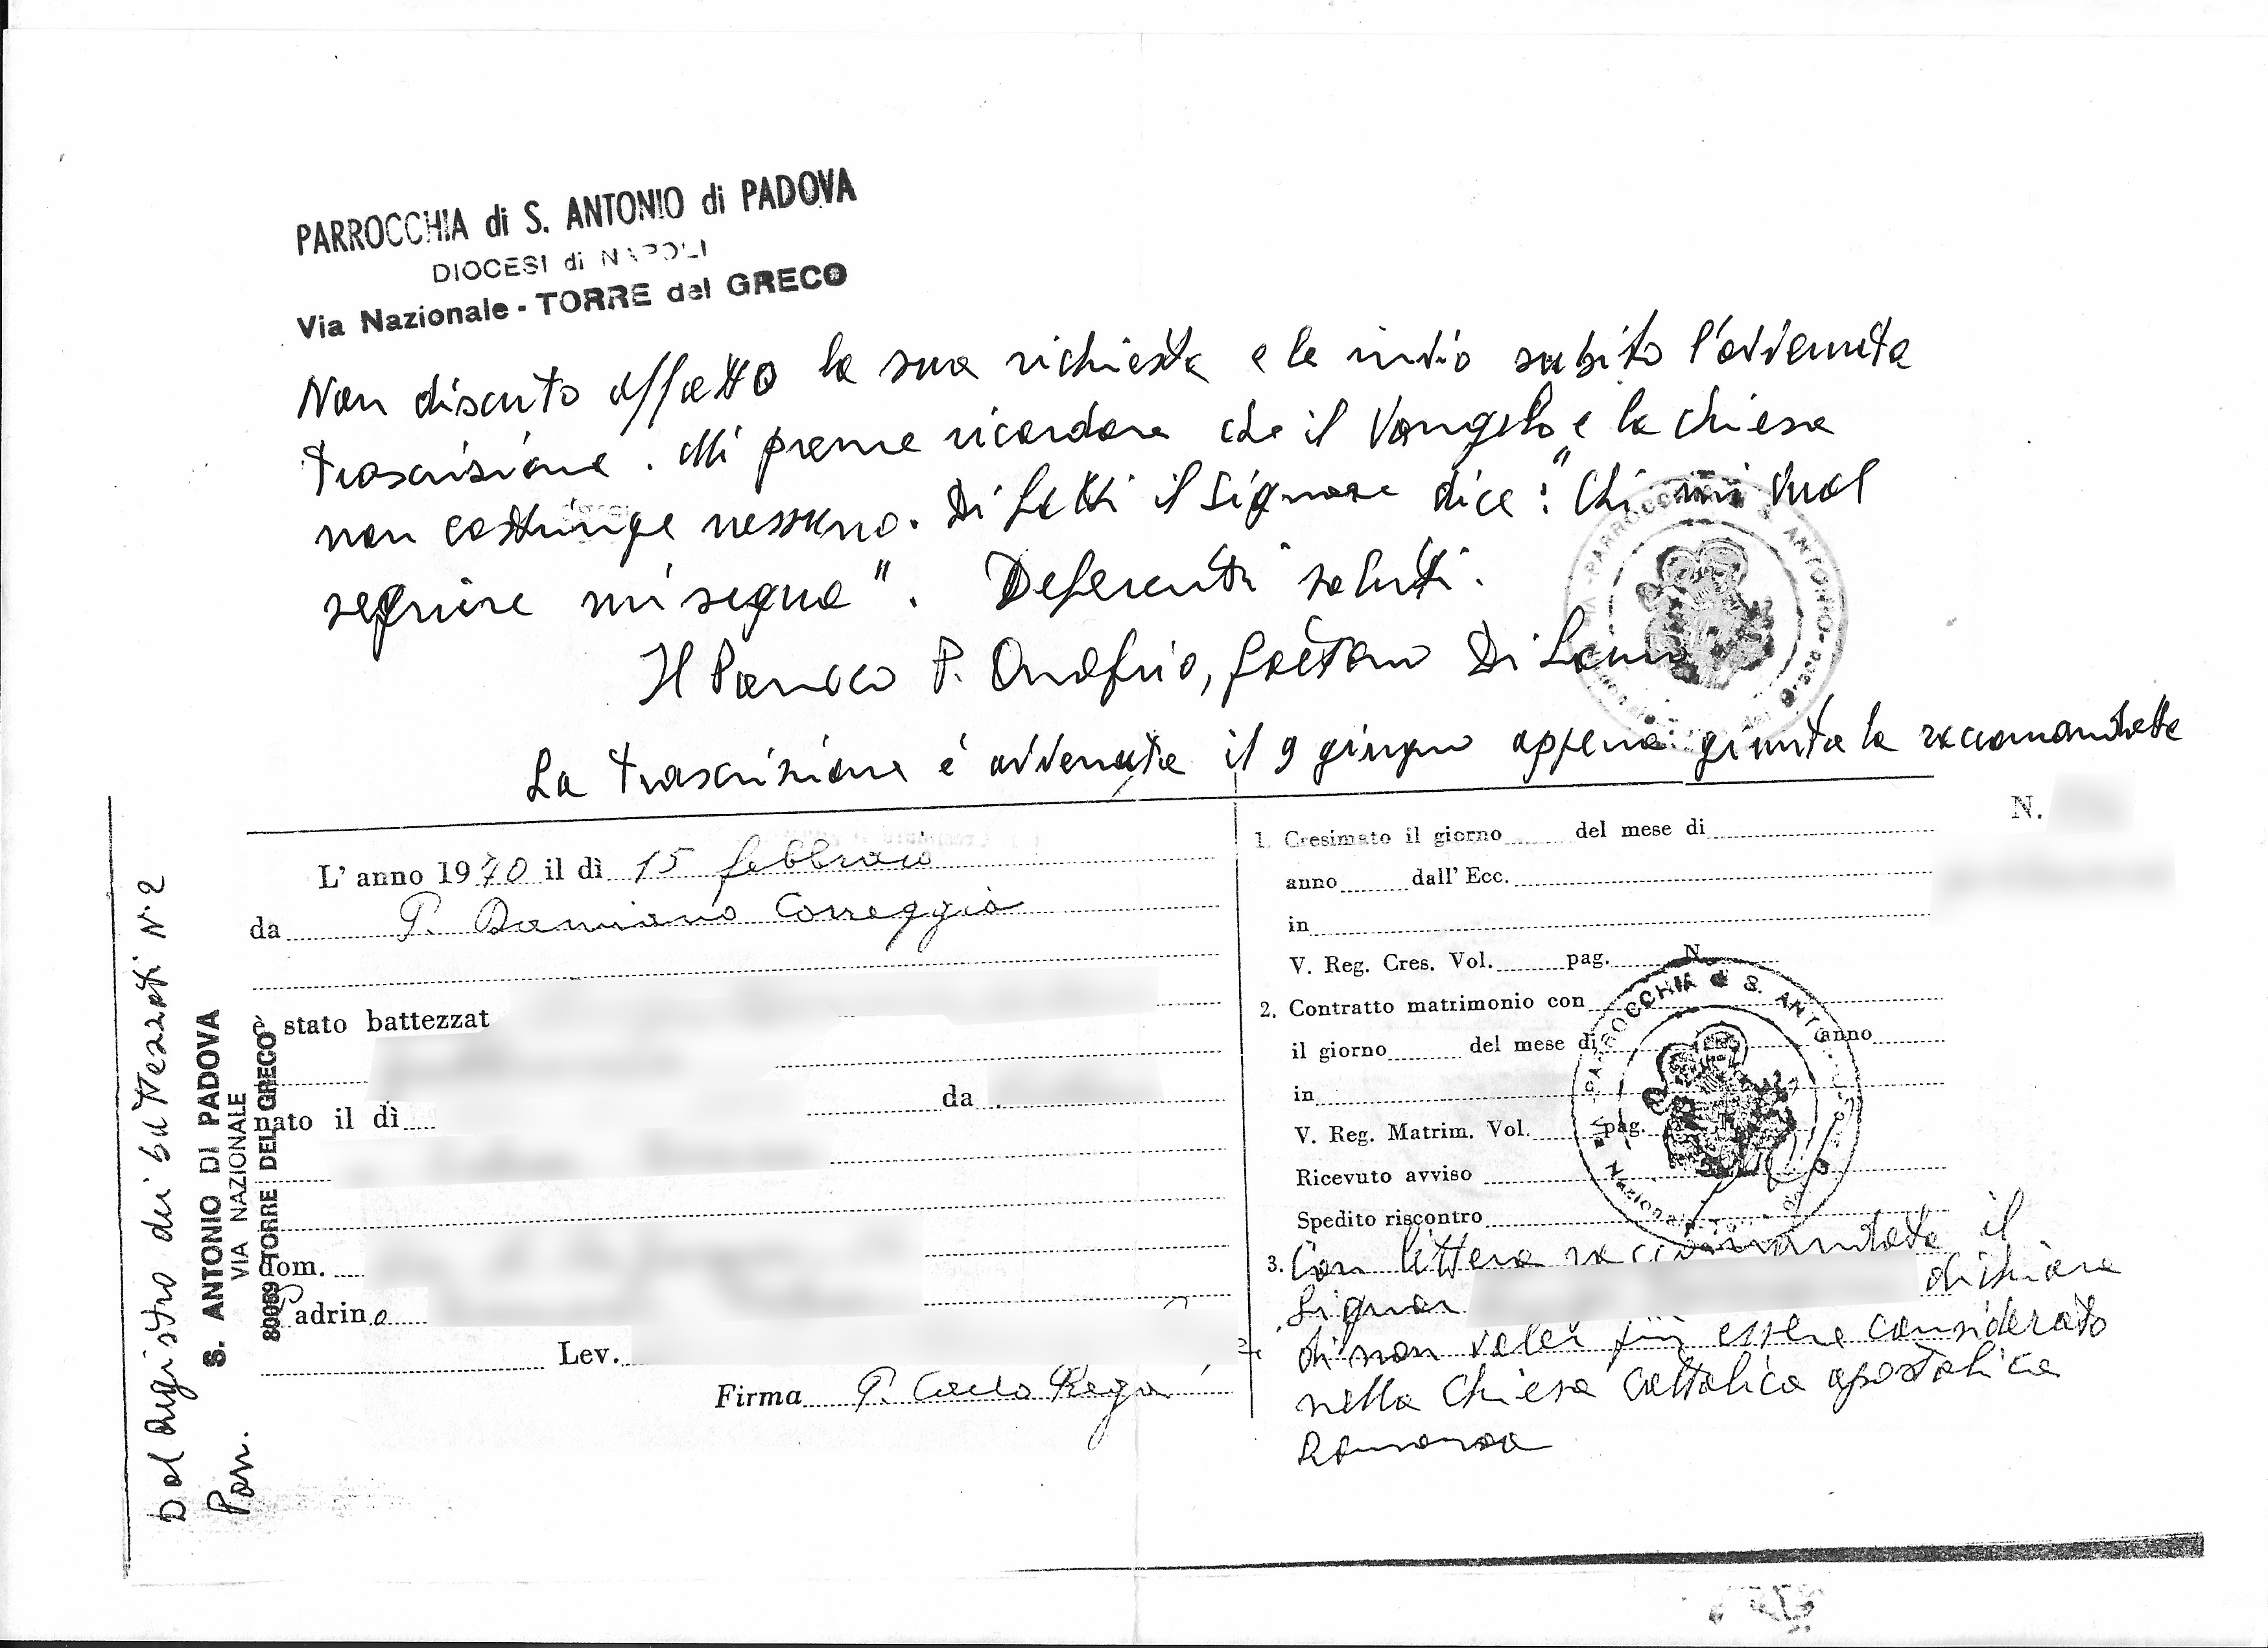 PARROCCHIA di S. ANTONIO di PADOVA
DIOCESI di NAPOLI
Via Nazionale - TORRE del GRECO
Non discuto affatto la sua richiesta e le invio subito l'avvenuta
trascrizione. Mi preme ricordare che il Vangelo e la chiesa
non costringe nessuno. Difatti il Signore dice: "Chi mi vuol
seguire mi segua". Deferenti saluti.
Il Parroco P. Onofrio, Gaetano Di
La trascrizione è avvenuta il 9 giugno appena giunta la raccomandata
Dal Registro dei battezzati N. 2
Parr.
S. ANTONIO DI PADOVA
VIA NAZIONALE
80059 TORRE DEL GRECO
L' anno 1970 il dì 15 febbraio
da P. Damiano Correggia
è stato battezzat
nato il dì da
dom.
Padrino
Lev.
Firma P. Carlo Rega
N.
1. Cresimato il giorno del mese di
anno dall' Ecc.
in
V. Reg. Cres. Vol. pag. N.
2. Contratto matrimonio con
il giorno del mese di anno
in
V. Reg. Matrim. Vol. pag.
Ricevuto avviso
Spedito riscontro
3. Con lettera raccomandata il
Signor dichiara
di non voler più essere considerato
nella Chiesa Cattolica apostolica
Romana
PARROCCHIA di S. ANTONIO
PARROCCHIA di S. ANTONIO